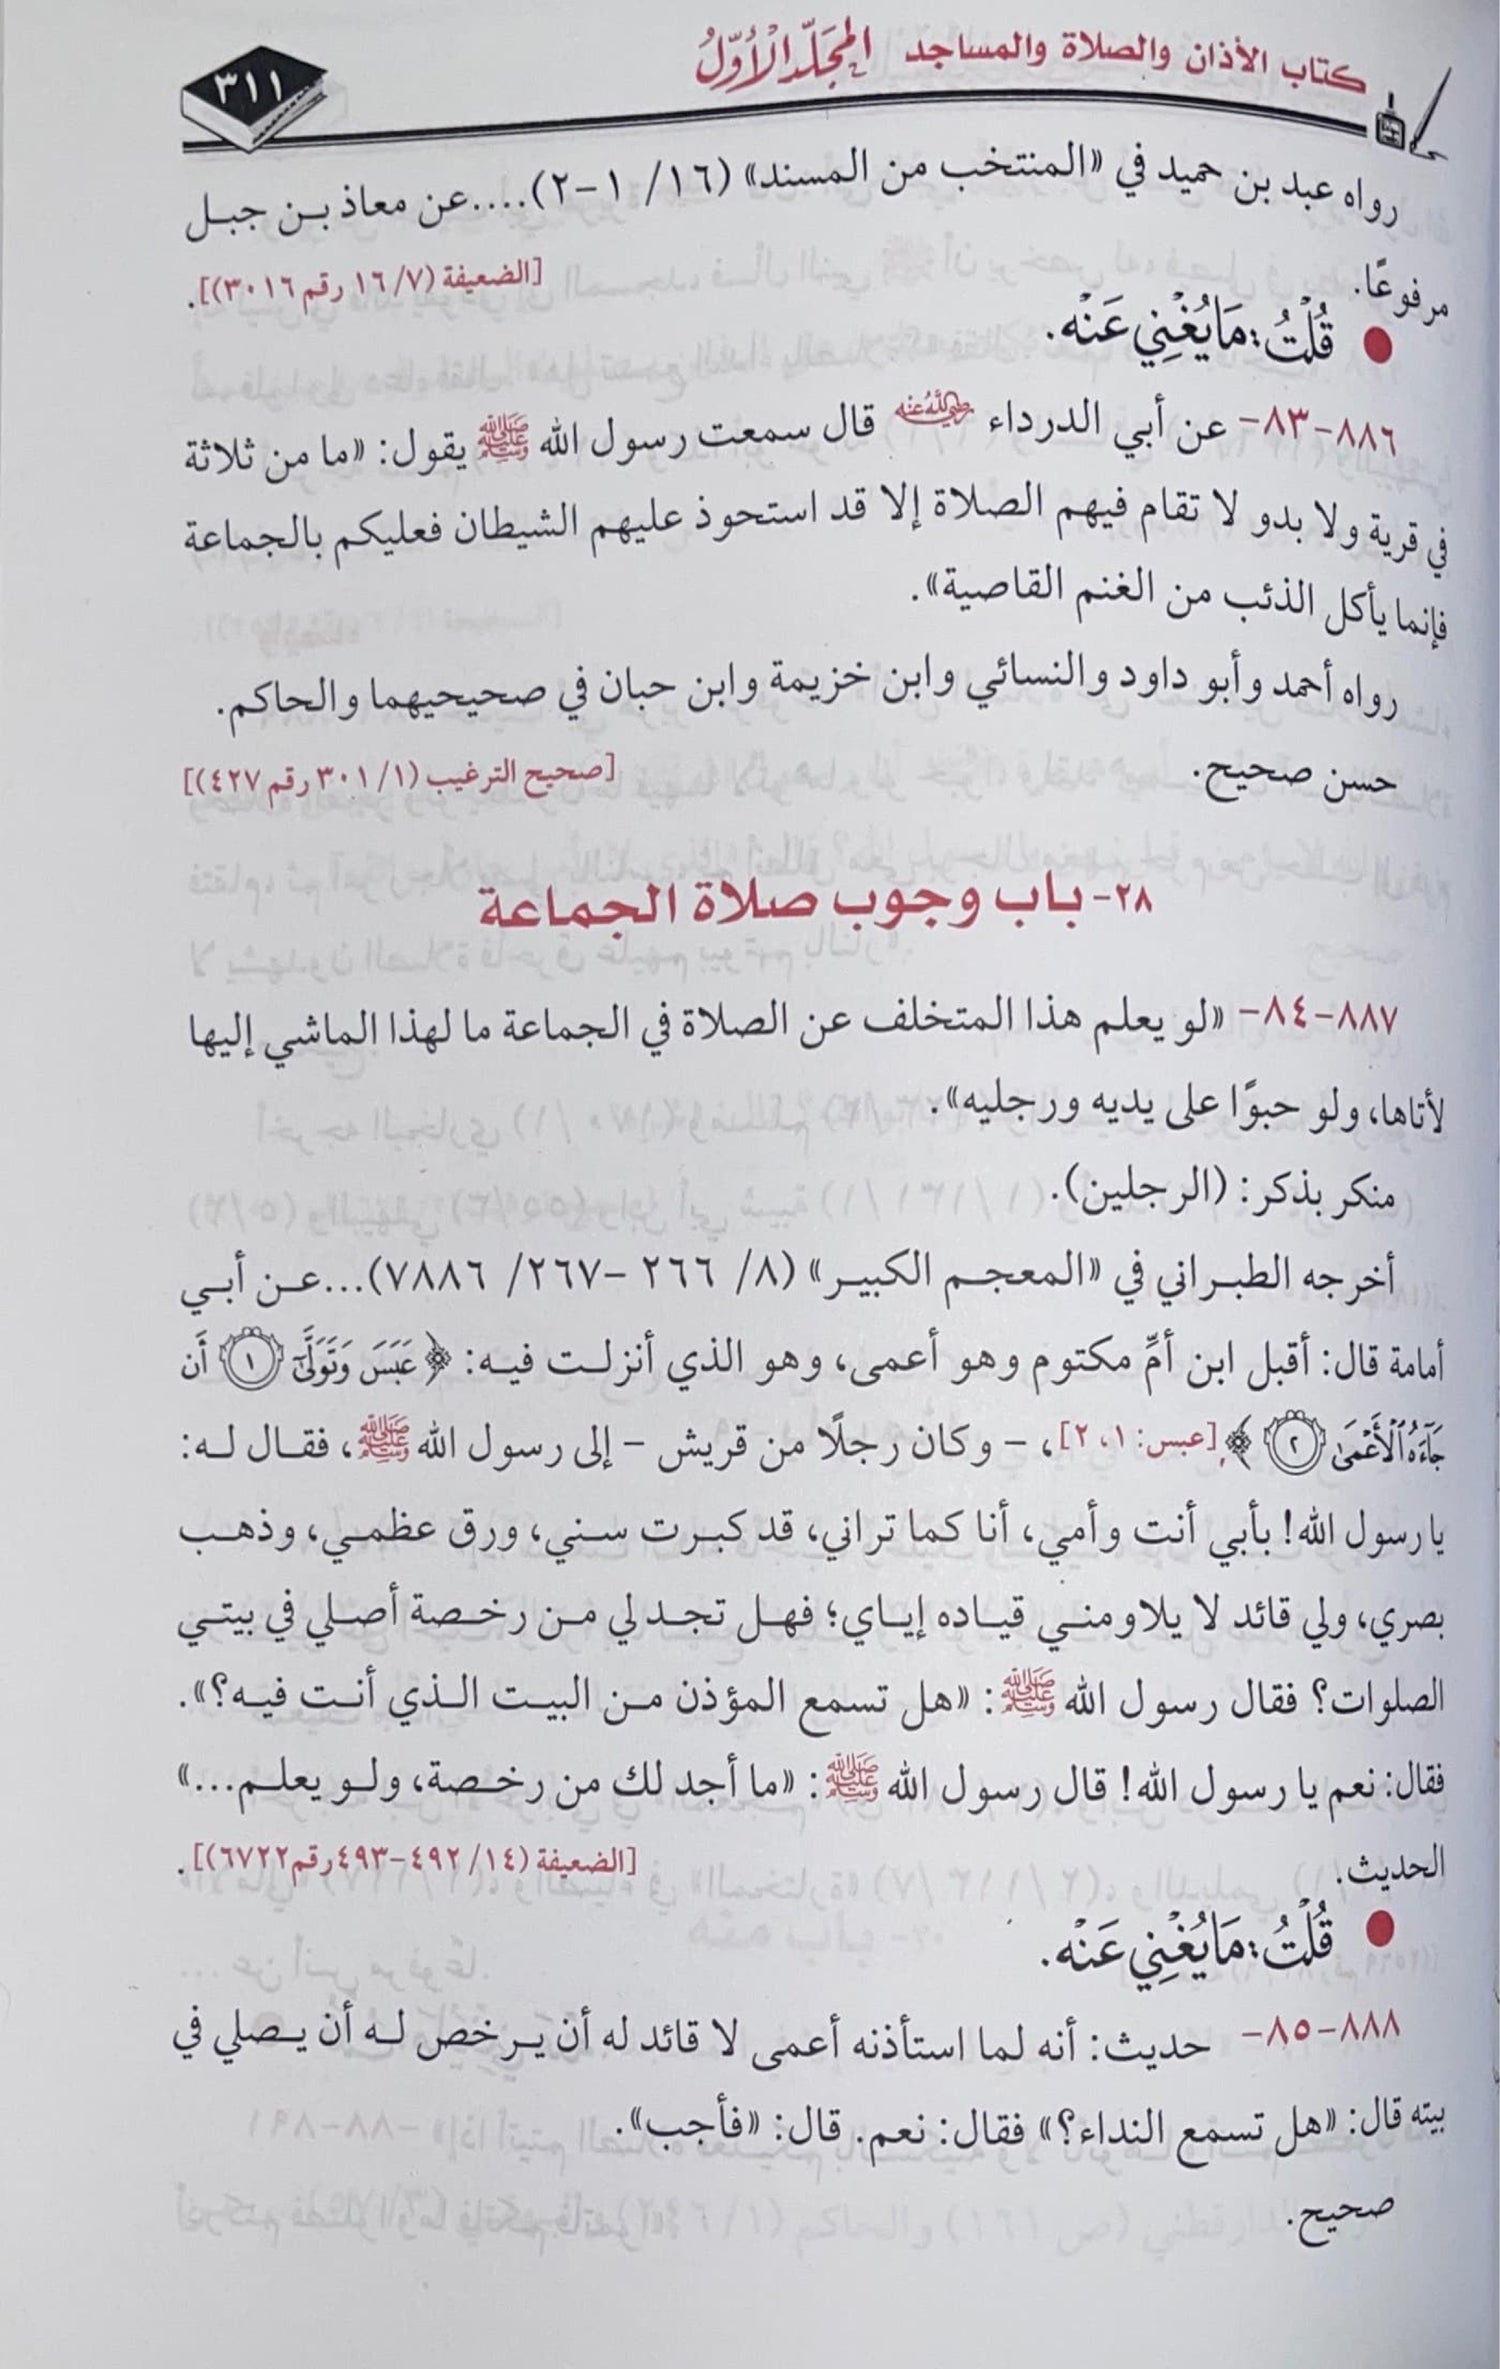 كتاب الأذان والصلاة والمساجد المجلد الأول
٣١١
رواه عبد بن حميد في «المنتخب من المسند» (١٦/ ١-٢)....عن معاذ بن جبل
مرفوعًا.
[الضعيفة (١٦/٧ رقم ٣٠١٦)].
● قُلْتُ: مَا يُغْنِي عَنْه.
٨٨٦-٨٣- عن أبي الدرداء رضي الله عنه قال سمعت رسول الله ﷺ يقول: «ما من ثلاثة
في قرية ولا بدو لا تقام فيهم الصلاة إلا قد استحوذ عليهم الشيطان فعليكم بالجماعة
فإنما يأكل الذئب من الغنم القاصية».
رواه أحمد وأبو داود والنسائي وابن خزيمة وابن حبان في صحيحيهما والحاكم.
حسن صحيح. [صحيح الترغيب (٣٠١/١ رقم ٤٢٧)]
٢٨- باب وجوب صلاة الجماعة
٨٨٧-٨٤- «لو يعلم هذا المتخلف عن الصلاة في الجماعة ما لهذا الماشي إليها
لأتاها، ولو حبوًا على يديه ورجليه».
منكر بذكر: (الرجلين).
أخرجه الطبراني في «المعجم الكبير» (٨/ ٢٦٦ -٢٦٧/ ٧٨٨٦)...عن أبي
أمامة قال: أقبل ابن أمِّ مكتوم وهو أعمى، وهو الذي أنزلت فيه: ﴿ عَبَسَ وَتَوَلَّىٰٓ ١ أَن
جَآءَهُ ٱلْأَعْمَىٰ ٢ ﴾ [عبس: ١، ٢]، - وكان رجلًا من قريش - إلى رسول الله ﷺ، فقال له:
يا رسول الله! بأبي أنت وأمي، أنا كما تراني، قد كبرت سني، ورق عظمي، وذهب
بصري، ولي قائد لا يلاومني قياده إياي؛ فهل تجد لي من رخصة أصلي في بيتي
الصلوات؟ فقال رسول الله ﷺ: «هل تسمع المؤذن من البيت الذي أنت فيه؟».
فقال: نعم يا رسول الله! قال رسول الله ﷺ: «ما أجد لك من رخصة، ولو يعلم...»
الحديث. [الضعيفة (١٤/ ٤٩٢-٤٩٣ رقم ٦٧٢٢)].
● قُلْتُ: مَا يُغْنِي عَنْه.
٨٨٨-٨٥- حديث: أنه لما استأذنه أعمى لا قائد له أن يرخص له أن يصلي في
بيته قال: «هل تسمع النداء؟» فقال: نعم. قال: «فأجب».
صحيح.